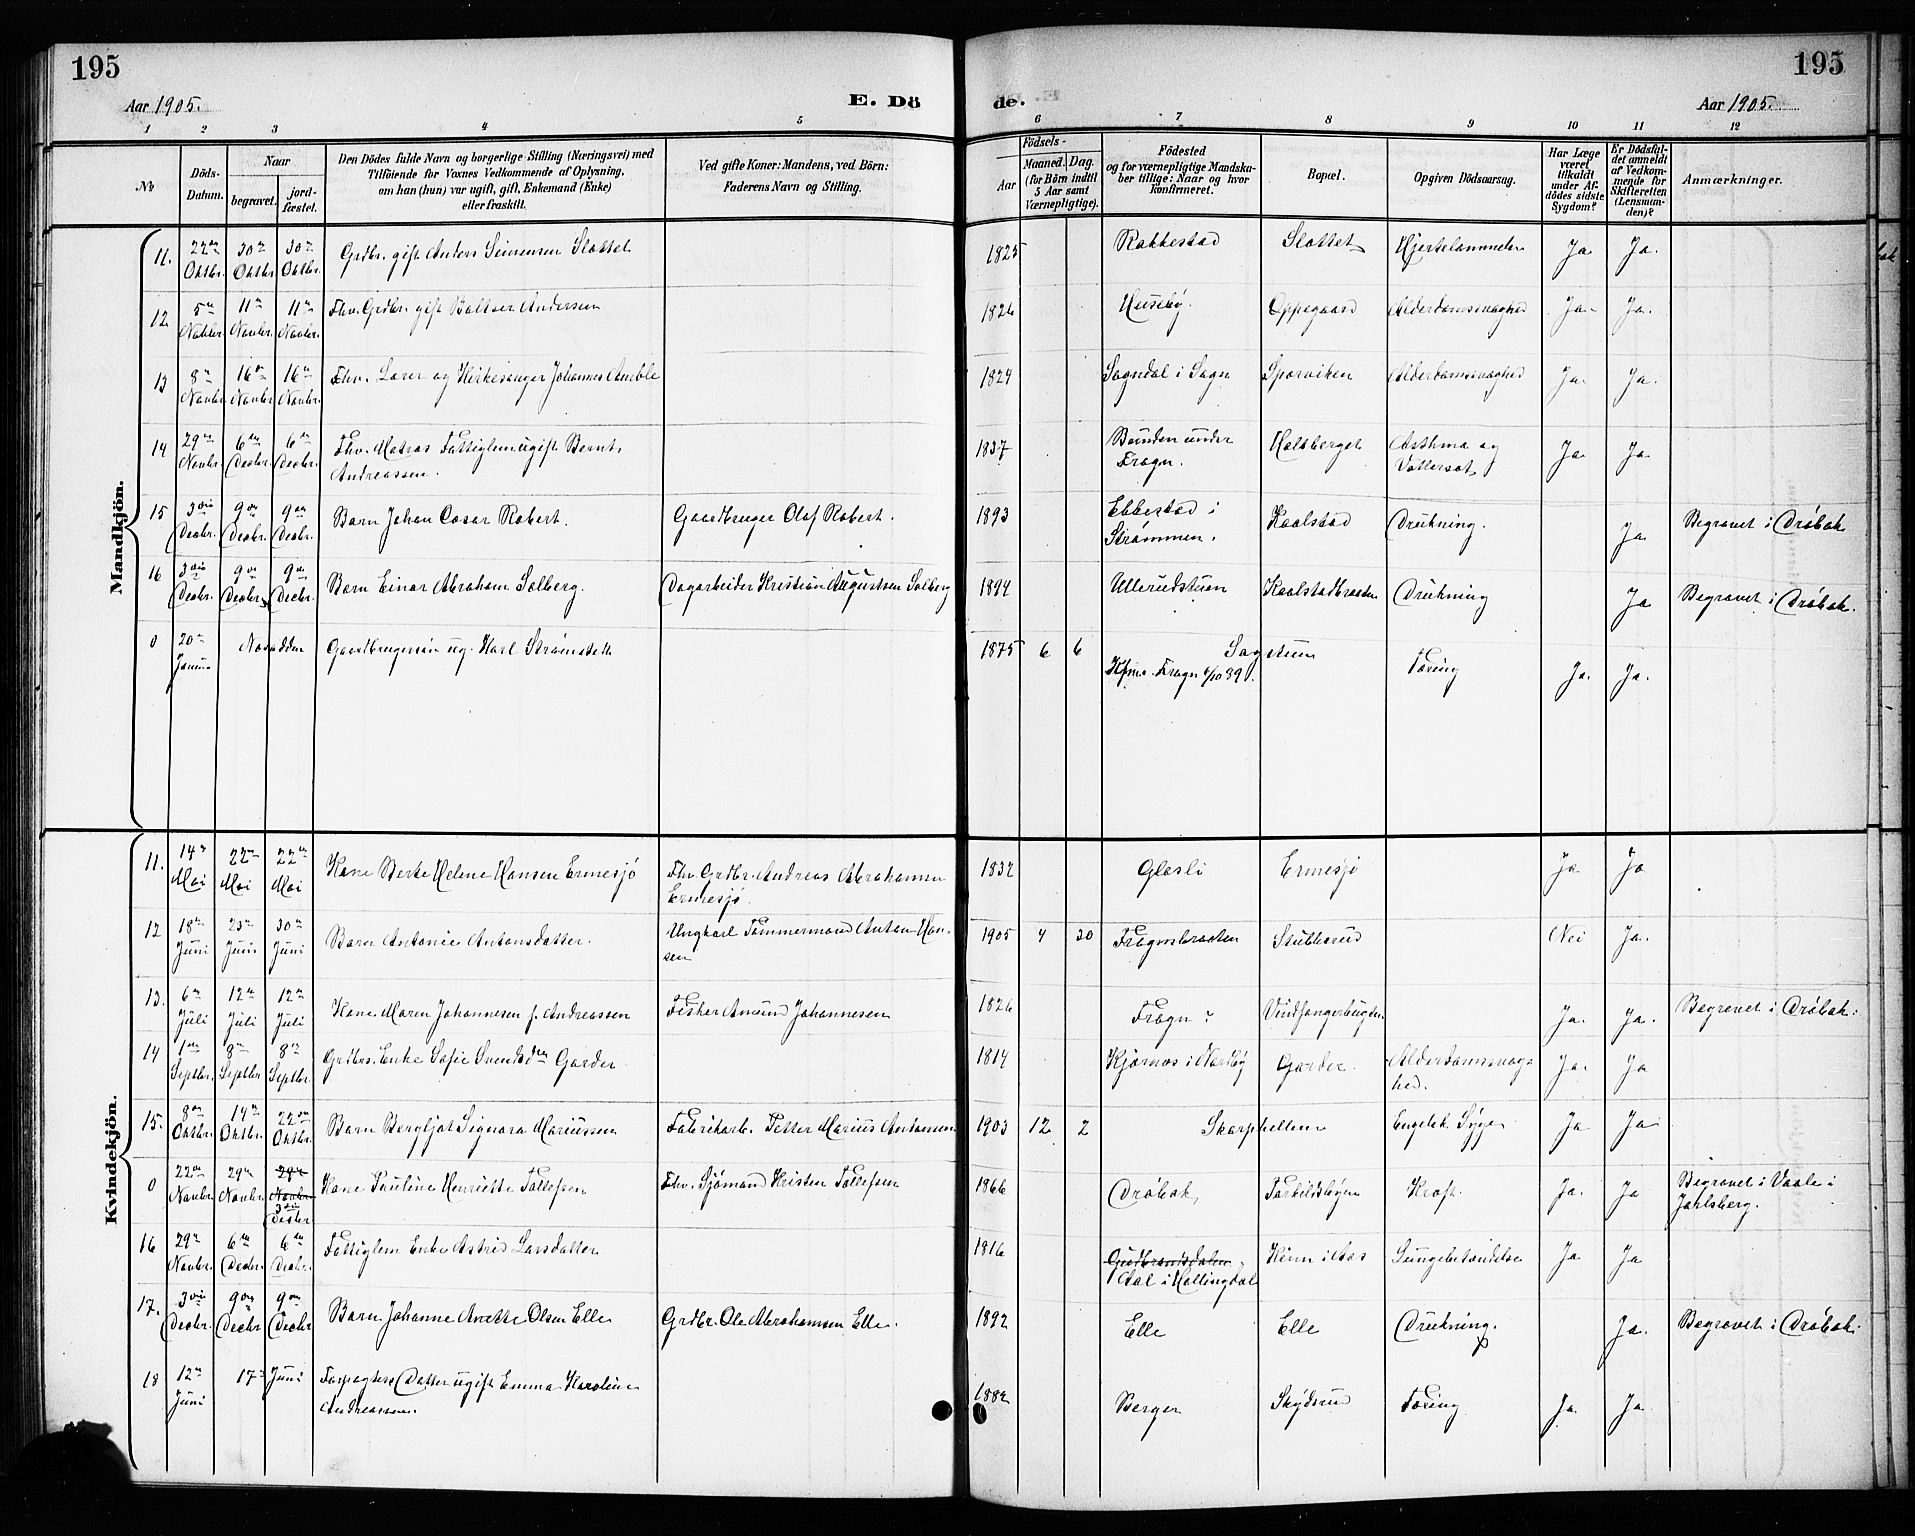 195
195
Aar 1905.
E. Dö
de.
Aar 1905.
1 2 3 4 5 6 7 8 9 10 11 12
No
Döds-
Datum.
Naar
begravet.
jord-
fæstet.
Den Dödes fulde Navn og borgerlige Stilling (Næringsvei) med
Tilföiende for Voxnes Vedkommende af Oplysning,
om han (hun) var ugift, gift, Enkemand (Enke)
eller fraskilt.
Ved gifte Koner: Mandens, ved Börn:
Faderens Navn og Stilling.
Födsels-
Aar
Maaned. Dag.
(for Börn indtil
5 Aar samt
Værnepligtige).
Födested
og for værnepligtige Mandska-
ber tillige: Naar og hvor
konfirmeret.
Bopæl.
Opgiven Dödsaarsag.
Har Læge
været
tilkaldt
under Af-
dödes sidste
Sygdom?
Er Dödsfal-
det anmeldt
af Vedkom-
mende for
Skifteretten
(Lensman-
den)?
Anmærkninger.
Mandkjön.
11. 22de Oktbr. 30te Oktbr. 30te Oktbr. Grdbr. gift Anders Simensen Slottet 1825 Rakkestad Slottet Hjertelammelse Ja Ja.
12. 5te Novbr. 11te Novbr. 11te Novbr. Fhv. Grdbr. gift Baltser Andersen 1826 Huseby. Oppegaard Alderdomssvaghed Ja. Ja.
13 8de Novbr. 16de Novbr. 16de Novbr. Fhv. Lærer og Kirkesanger Johannes Amble 1829 Sogndal i Sogn Sporviken Alderdomssvaghed Ja. Ja.
14 29de Novbr. 6te Decbr. 6te Decbr. Fhv. Matros Fattiglem ugift Bernt
Andreassen. 1837 Bunden under
Frogn. Holsberget Asthma og
Vattersot Ja Ja
15 3die Decbr. 9de Decbr. 9de Decbr. Barn Johan Cæsar Robert. Gaardbruger Olaf Robert. 1893 Ebbestad i
Strømmen. Kaalstad Drukning. Ja Begravet i Drøbak
16 3die Decbr. 9de Decbr. 9de Decbr. Barn Einar Abraham Solberg. Dagarbeider Kristian Augustsen Solberg 1894 Ullerudstuen Kaalstadbraaten Drukning Ja Begravet i Drøbak.
0 20de Gaardbrugersøn ug. Karl 1875 6 6 Sagstuen
Kfm. Frogn 6/10 89. Tæring Ja. Ja.
Kvindekjön.
11. 14de Mai 22de Mai 22de Mai Kone Berte Helene Hansen Ermesjø Fhv. Grdbr. Andreas Abrahamsen
Ermesjø. 1832 Glosli Ermesjø Ja Ja
12 18de Juni 23de Juni 30te Juni Barn Antonie Antonsdatter. Ungkarl Tømmermand Anton Han-
sen 1905 4 30 Frognsbraaten Stubberud Nei Ja.
13. 6te Juli 12te Juli 12te Juli Kone Maren Johannesen f. Andreassen Fisker Amund Johannesen 1826 Frogn ? Vindfangerbugten. Ja. Ja. Begravet i Drøbak.
14 1ste Septbr. 8de Septbr. 8de Septbr. Grdbrs. Enke Sofie Svendsdtr Garder 1814 Kjærnes i Nordby Garder. Alderdomssvag-
hed. Ja. Ja
15. 8de Oktbr. 14de Oktbr. 22de Oktbr. Barn Bergljot Signora Mariussen Fabrikarb. Petter Marius Antonsen 1903 12 2 Skorphellen Engelsk Syge Ja Ja
0 22de Novbr. 29de Novbr. 29de Novbr. 3die Decbr. Kone Pauline Henriette Tollefsen Fhv. Sjømand Kristen Tollefsen 1866 Drøbak, Torkildsbyen Kræft. Ja. Ja Begravet i Vaale i
Jahlsberg.
16 29de Novbr. 6te Decbr. 6te Decbr. Fattiglem Enke Astrid Larsdatter 1816 Gudbrandsdalen
Aal i Hallingdal Kinn i Aas Lungebetændelse Ja Ja
17. 3die Decbr. 9de Decbr. 9de Decbr. Barn Johanne Anette Olsen Elle Grdbr. Ole Abrahamsen Elle. 1892 Elle Elle Drukning. Ja. Begravet i Drøbak.
18 12te Juni 17de Juni Forpagters Datter ugift Emma Karoline
Andreassen. 1882 Berger Skydsrud Tæring Ja. Ja